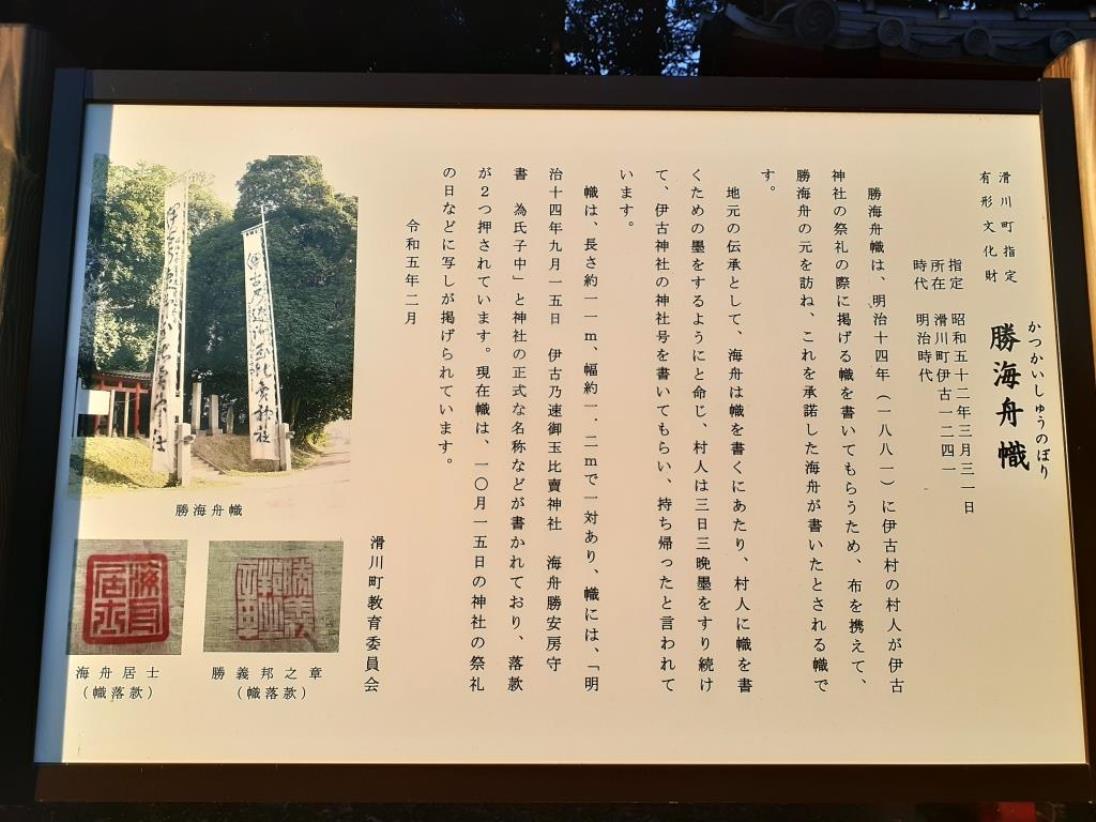 滑川町指定
有形文化財
かつかいしゅうのぼり
勝海舟幟
指定　昭和五十二年三月三一日
所在　滑川町伊古一二四一
時代　明治時代
勝海舟幟は、明治十四年（一八八一）に伊古村の村人が伊古
神社の祭礼の際に掲げる幟を書いてもらうため、布を携えて、
勝海舟の元を訪ね、これを承諾した海舟が書いたとされる幟で
す。
地元の伝承として、海舟は幟を書くにあたり、村人に幟を書
くための墨をするようにと命じ、村人は三日三晩墨をすり続け
て、伊古神社の神社号を書いてもらい、持ち帰ったと言われて
います。
幟は、長さ約一一ｍ、幅約一．二ｍで一対あり、幟には、「明
治十四年九月一五日　伊古乃速御玉比賣神社　海舟勝安房守
書　為氏子中」と神社の正式な名称などが書かれており、落款
が２つ押されています。現在幟は、一〇月一五日の神社の祭礼
の日などに写しが掲げられています。
令和五年二月
滑川町教育委員会
勝海舟幟
勝義邦之章
（幟落款）
海舟居士
（幟落款）
伊古乃速御玉比賣神社
海舟居士